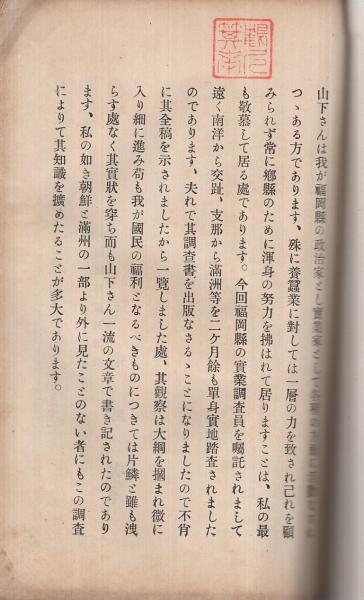 山下さんは我が福岡縣の政治家とし實業家として
つゝある方であります、殊に養蠶業に對しては一層の力を致され己れを顧
みられず常に鄕縣のために渾身の努力を拂はれて居りますことは、私の最
も敬慕して居る處であります。今回福岡縣の實業調査員を囑託されまして
遠く南洋から交趾、支那から滿洲等を二ケ月餘も單身實地踏査されました
のであります、夫れで其調査書を出版なさるゝことになりましたので不肖
に其全稿を示されましたから一覽しました處、其觀察は大綱を摑まれ微に
入り細に進み苟も我が國民の福利となるべきものにつきては片鱗と雖も洩
らす處なく其實狀を穿ち而も山下さん一流の文章で書き記されたのであり
ます、私の如き朝鮮と滿州の一部より外に見たことのない者にもこの調査
によりて其知識を擴めたることが多大であります。